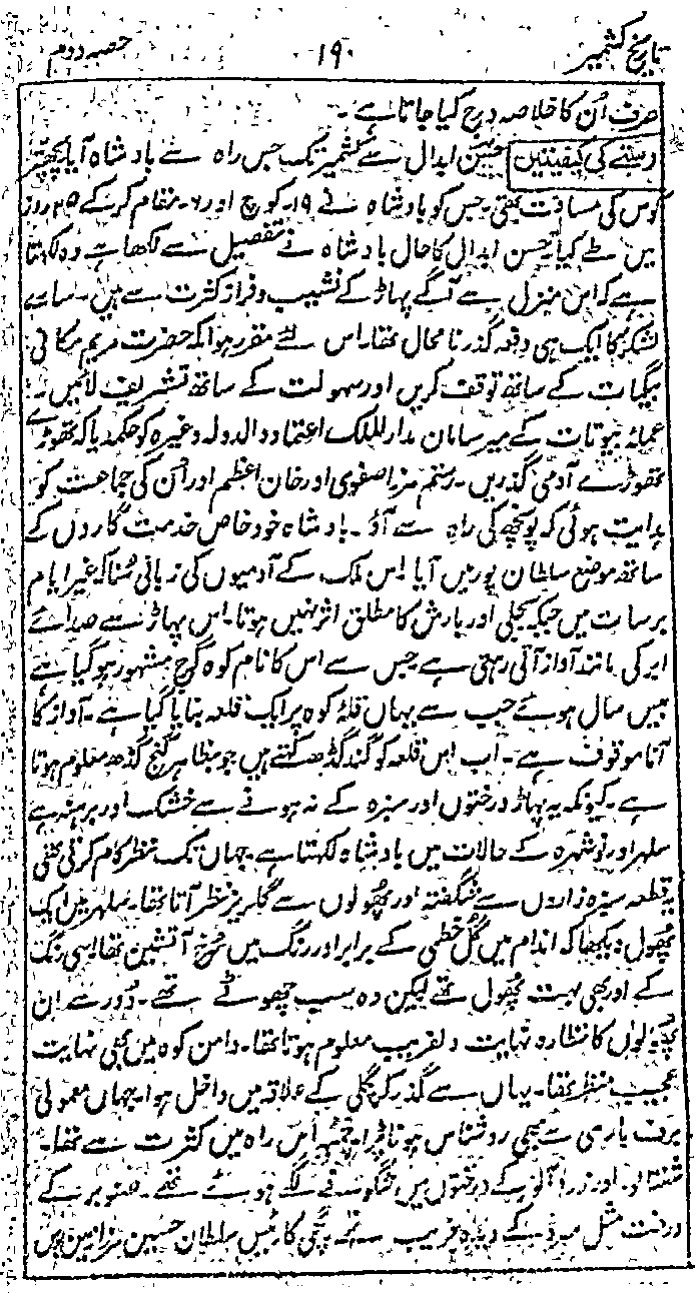 تاریخ کشمیر ۱۹۰ حصہ دوم
صرف اُن کا خلاصہ درج کیا جاتا ہے۔
رستے کی کیفیتیں حسن ابدال سے کشمیر تک جس راہ سے بادشاہ آیا پچھتر
کوس کی مسافت تھی۔ جس کو بادشاہ نے ۱۹۔ کوچ اور ۶۔ مقام کرکے ۲۵ روز
میں طے کیا۔ حسن ابدال کا حال بادشاہ نے تفصیل سے لکھا ہے وہ لکھتا
ہے کہ اس منزل سے آگے پہاڑ کے نشیب و فراز کثرت سے ہیں۔ سارے
لشکر کا ایک ہی دفعہ گذرنا محال تھا۔ اس لئے مقرر ہوا کہ حضرت مریم مکانی
بیگمات کے ساتھ توقف کریں اور سہولت کے ساتھ تشریف لائیں۔
عملۂ بیوتات کے میر سامان مدار الملک اعتماد الدولہ وغیرہ کو حکم دیا کہ تھوڑے
تھوڑے آدمی گذریں۔ رستم مرزا صفوی اور خان اعظم اور اُن کی جماعت کو
ہدایت ہوئی کہ پونچھ کی راہ سے آؤ۔ بادشاہ خود خاص خدمت گاروں کے
ساتھ موضع سلطان پور میں آیا اس ملک کے آدمیوں کی زبانی سُنا کہ غیر ایام
برسات میں جبکہ بجلی اور بارش کا مطلق اثر نہیں ہوتا۔ اس پہاڑ سے صدائے
ابر کی مانند آواز آتی رہتی ہے جس سے اس کا نام کوہ گرج مشہور ہو گیا ہے
بیس سال ہوئے جب سے یہاں قلۂ کوہ پر ایک قلعہ بنایا گیا ہے۔ آواز کا
آنا موقوف ہے۔ اب اس قلعہ کو گندگڈھ کہتے ہیں جو بظاہر گنج گڈھ معلوم ہوتا
ہے۔ کیونکہ یہ پہاڑ درختوں اور سبزہ کے نہ ہونے سے خشک اور برہنہ ہے
سلہر اور نوشہرہ کے حالات میں بادشاہ لکھتا ہے۔ جہاں تک نظر کام کرتی تھی
قطعہ سبزہ زاروں سے شگفتہ اور پھولوں سے گلریز نظر آتا تھا۔ سلہر میں ایک
پھول دیکھا کہ اندام میں گل خطمی کے برابر اور رنگ میں سُرخ آتشین تھا۔ اسی رنگ
کے اور بھی بہت پھول تھے لیکن وہ سب چھوٹے تھے۔ دُور سے ان
پھولوں کا نظارہ نہایت دلفریب معلوم ہوتا تھا۔ دامن کوہ میں بھی نہایت
عجیب منظر تھا۔ یہاں سے گذر کر پگلی کے علاقہ میں داخل ہوا۔ جہاں معمولی
برف باری سے بھی روشناس ہونا پڑا۔ اس راہ میں کثرت سے تھا۔
شفتالو۔ اور زردآلو کے درختوں میں شگوفے لگے ہوئے تھے۔ صنوبر کے
درخت مثل سرو کے دیدہ فریب تھے پگلی کا رئیس سلطان حسین